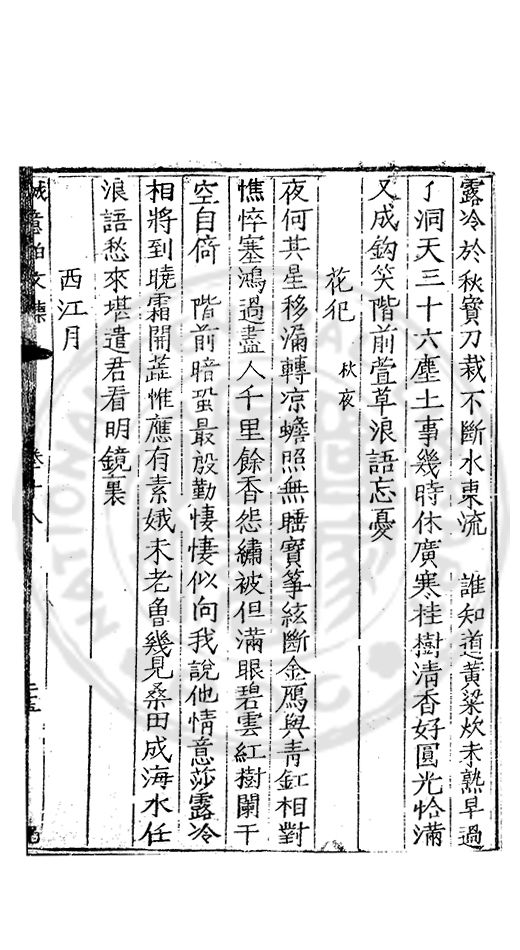 露冷於秋寶刀裁不斷水東流　誰知道黃粱炊未熟早過
了洞天三十六塵土事幾時休廣寒桂樹清香好圓光恰滿
又成鈎笑階前萱草浪語忘憂
花犯　秋夜
夜何其星移漏轉凉蟾照無睡寶箏絃斷金鴈與青釭相對
憔悴塞鴻過盡人千里餘香怨繡被但滿眼碧雲紅樹闌干
空自倚　階前暗蛩最殷勤悽悽似向我說他情意莎露冷
相將到曉霜開蕋惟應有素娥未老魯幾見桑田成海水任
浪語愁來堪遣君看明鏡裏
西江月
誠意伯文集　卷十八